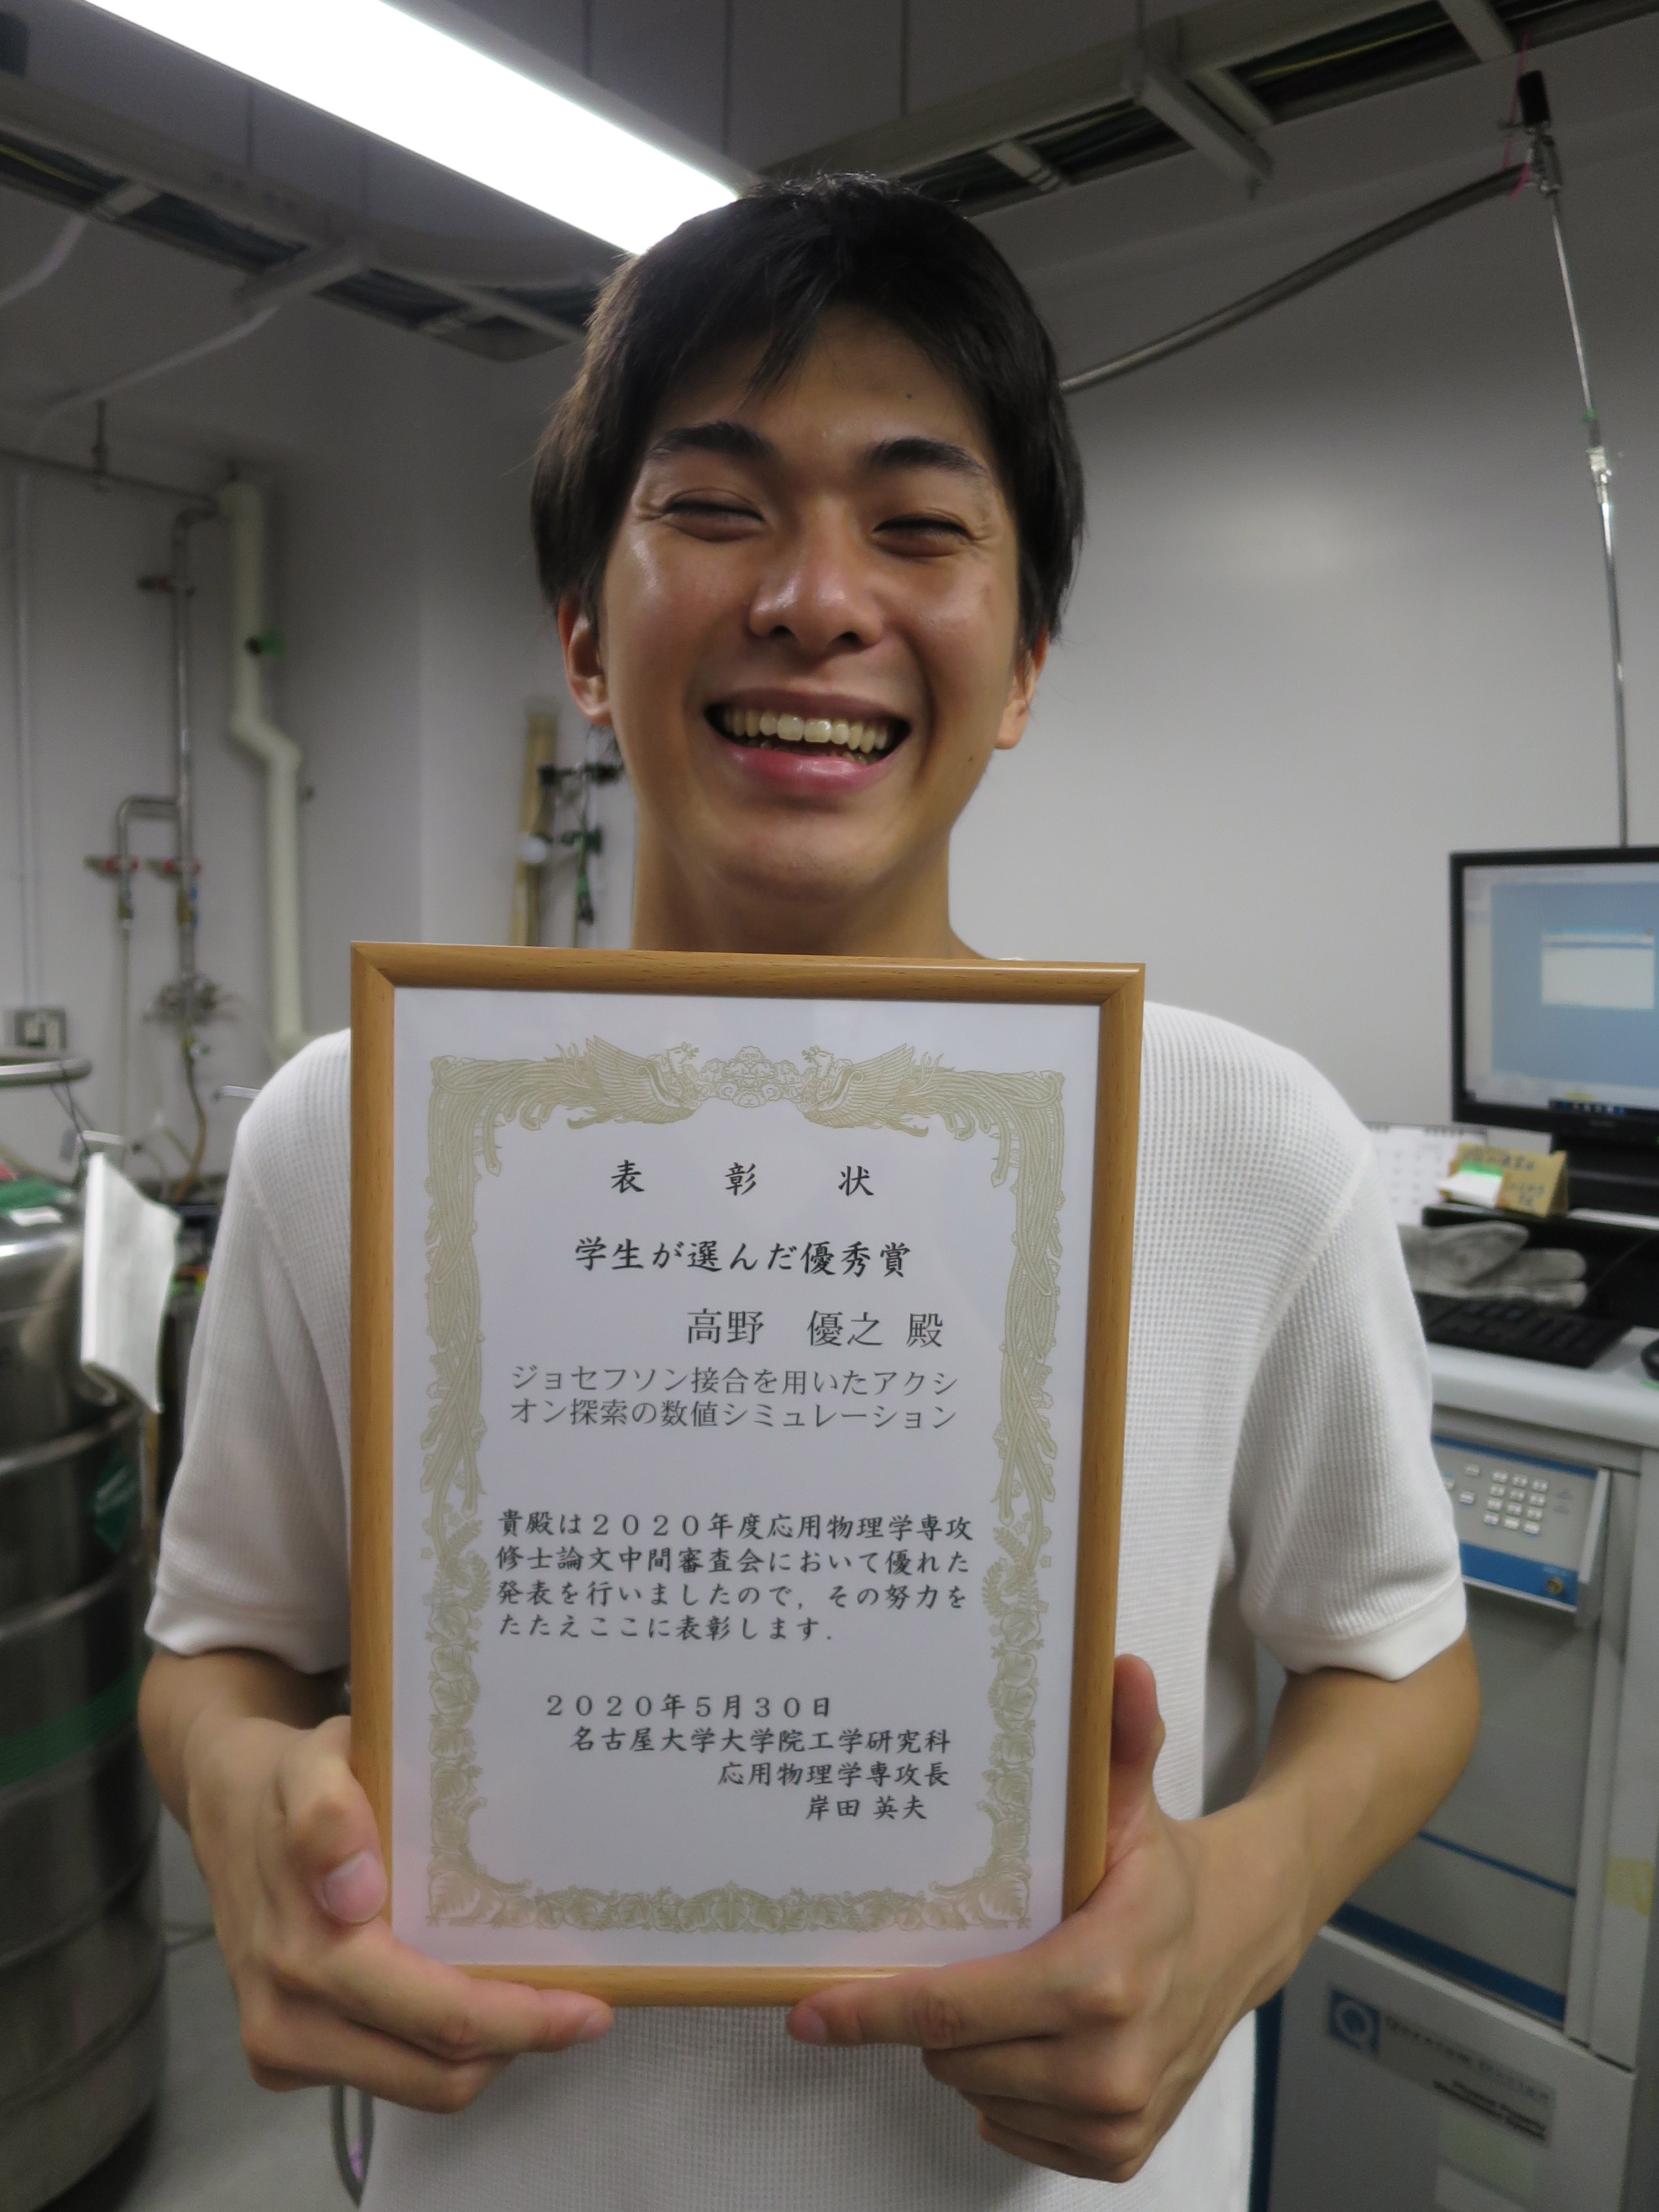 表 彰 状
学生が選んだ優秀賞
高野 優之 殿
ジョセフソン接合を用いたアクシ
オン探索の数値シミュレーション
貴殿は2020年度応用物理学専攻
修士論文中間審査会において優れた
発表を行いましたので,その努力を
たたえここに表彰します.
2020年5月30日
名古屋大学大学院工学研究科
応用物理学専攻長
岸田 英夫
QUANTUM DESIGN
Physical Property
Measurement System